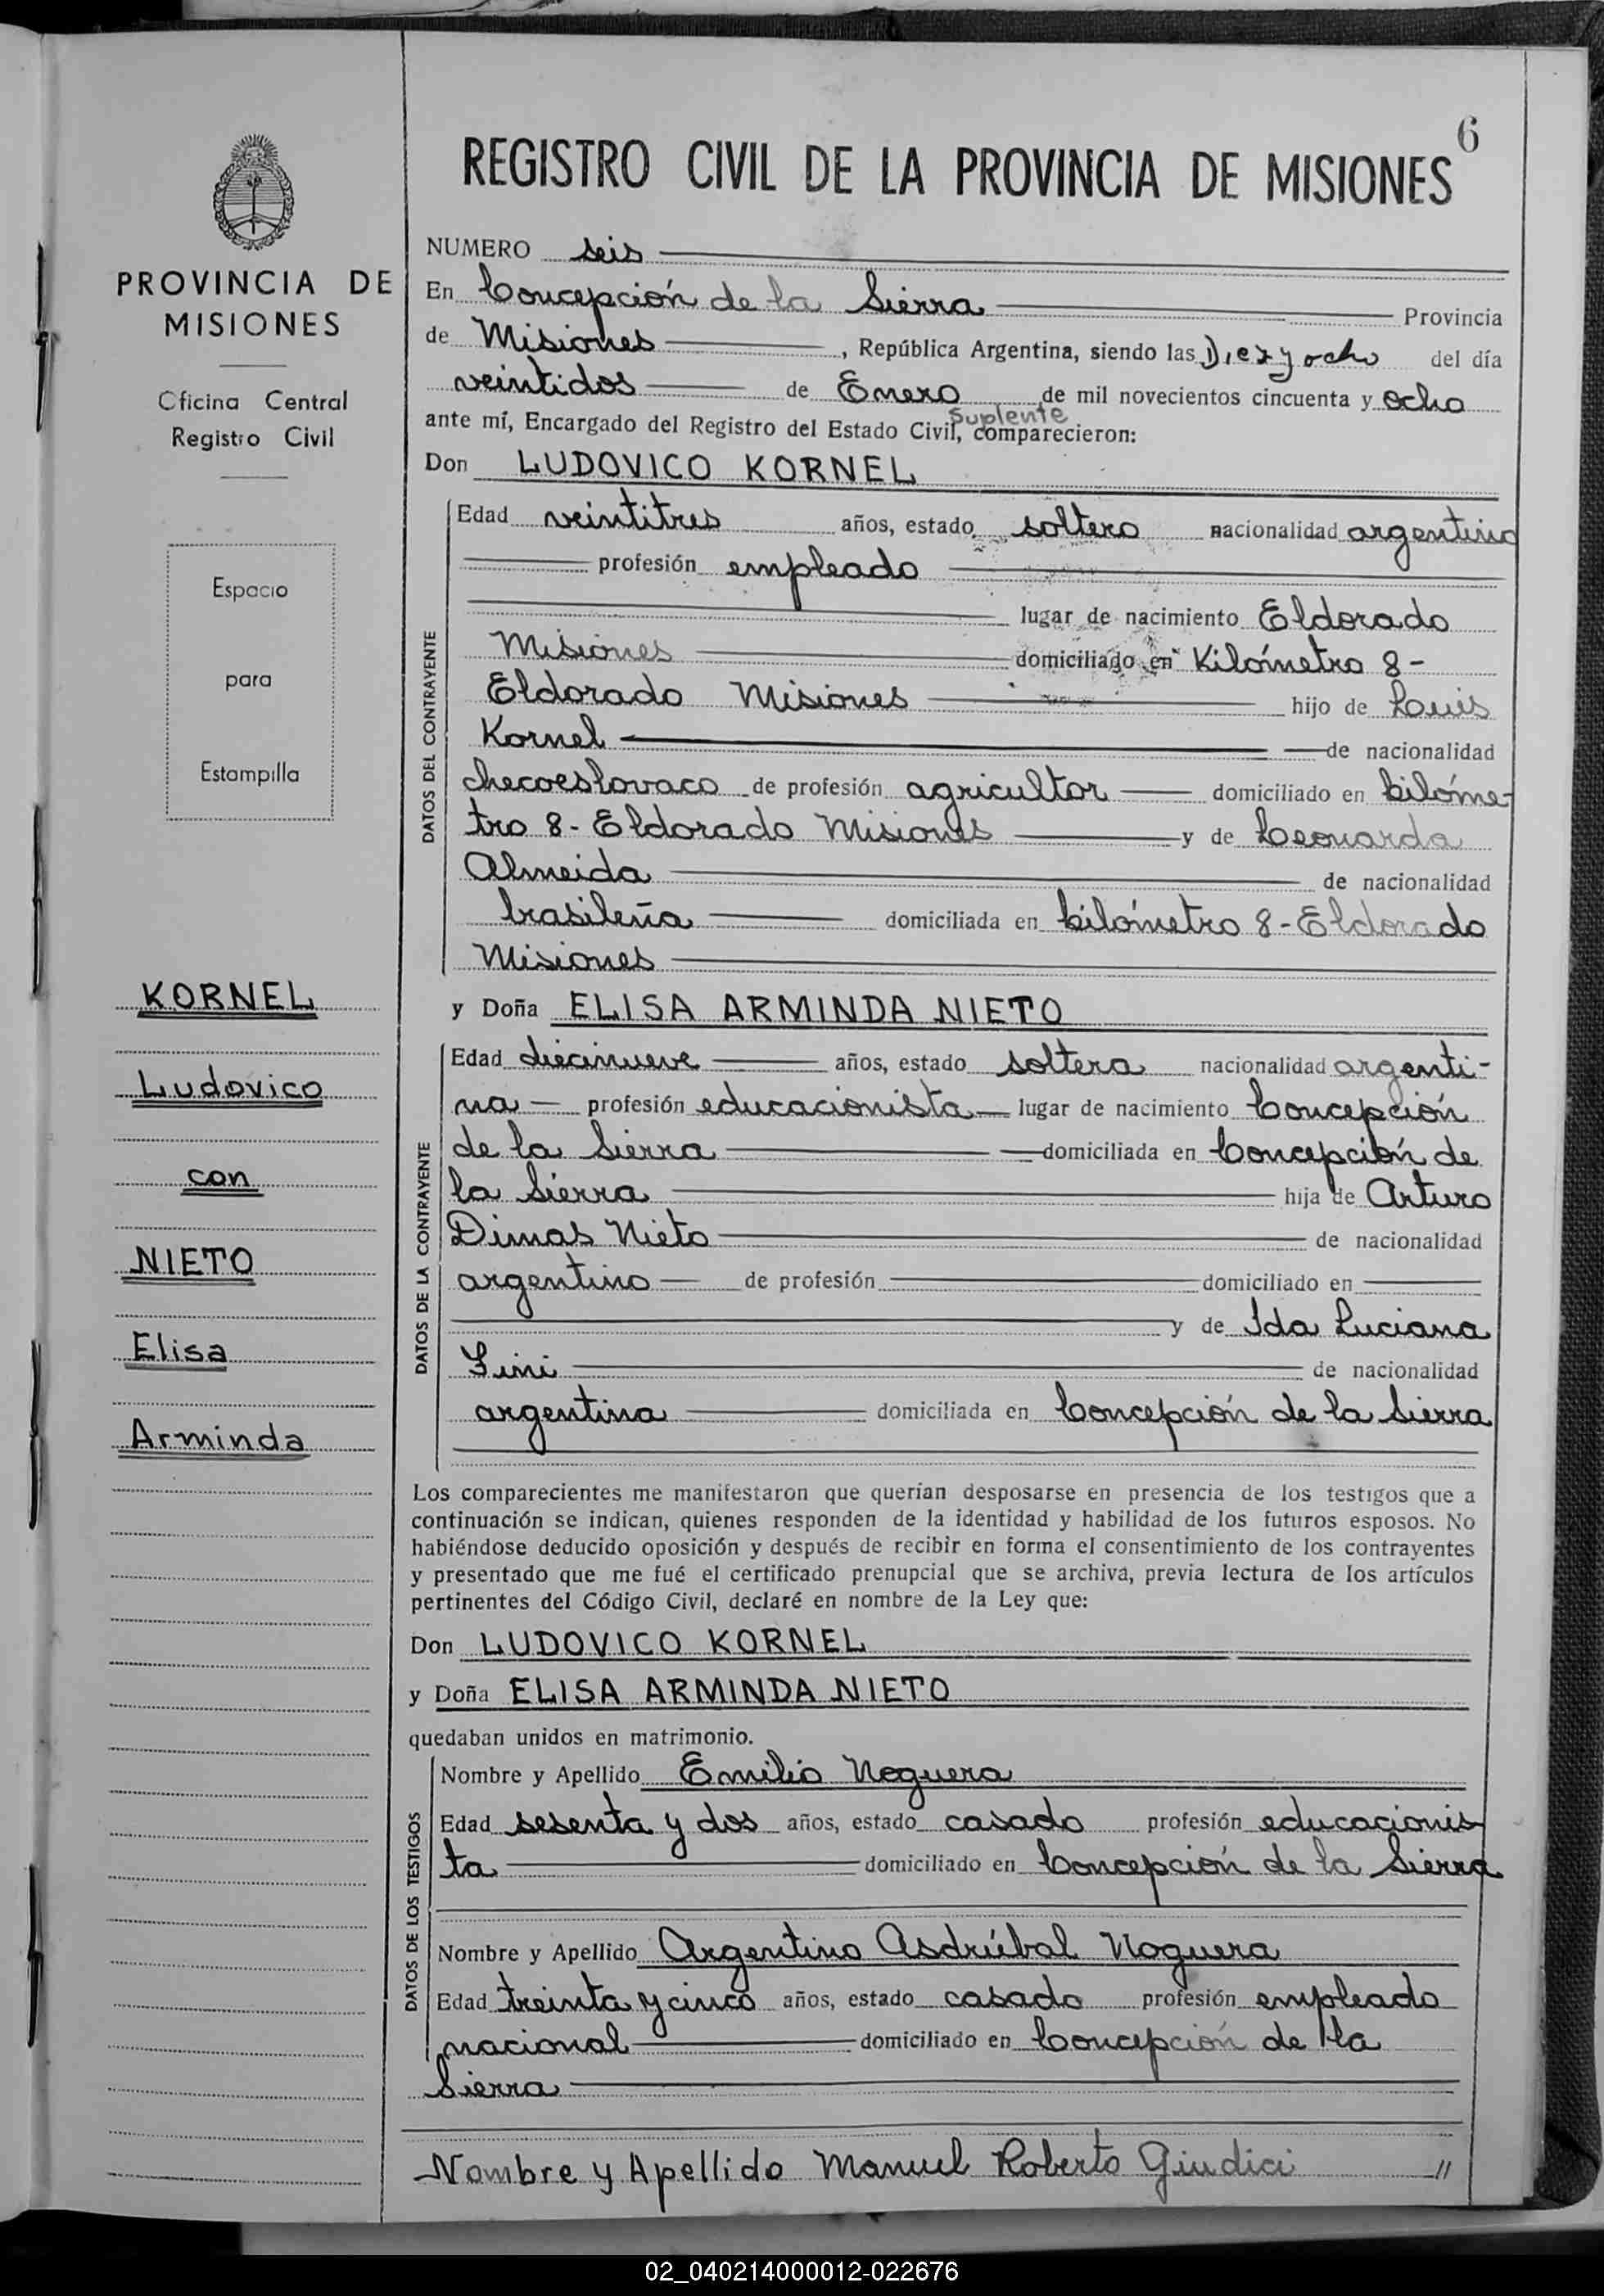 6
REGISTRO CIVIL DE LA PROVINCIA DE MISIONES
PROVINCIA DE
MISIONES
Oficina Central
Registro Civil
Espacio
para
Estampilla
KORNEL
Ludovico
con
NIETO
Elisa
Arminda
NUMERO seis
En Concepción de la Sierra Provincia
de Misiones, República Argentina, siendo las Diez y ocho del día
veintidos de Enero de mil novecientos cincuenta y ocho
suplente
ante mí, Encargado del Registro del Estado Civil, comparecieron:
Don LUDOVICO KORNEL
DATOS DEL CONTRAYENTE
Edad veintitres años, estado soltero nacionalidad argentino
profesión empleado
lugar de nacimiento Eldorado
Misiones domiciliado en Kilómetro 8-
Eldorado Misiones hijo de Luis
Kornel de nacionalidad
checoeslovaco de profesión agricultor domiciliado en kilóme-
tro 8-Eldorado Misiones y de Leonarda
Almeida de nacionalidad
brasileña domiciliada en kilómetro 8-Eldorado
Misiones
y Doña ELISA ARMINDA NIETO
DATOS DE LA CONTRAYENTE
Edad diecinueve años, estado soltera nacionalidad argenti-
na profesión educacionista lugar de nacimiento Concepción
de la Sierra domiciliada en Concepción de
la Sierra hija de Arturo
Dimas Nieto de nacionalidad
argentino de profesión domiciliado en
y de Ida Luciana
de nacionalidad
argentina domiciliada en Concepción de la Sierra
Los comparecientes me manifestaron que querían desposarse en presencia de los testigos que a
continuación se indican, quienes responden de la identidad y habilidad de los futuros esposos. No
habiéndose deducido oposición y después de recibir en forma el consentimiento de los contrayentes
y presentado que me fué el certificado prenupcial que se archiva, previa lectura de los artículos
pertinentes del Código Civil, declaré en nombre de la Ley que:
Don LUDOVICO KORNEL
y Doña ELISA ARMINDA NIETO
quedaban unidos en matrimonio.
DATOS DE LOS TESTIGOS
Nombre y Apellido Emilio Noguera
Edad sesenta y dos años, estado casado profesión educacionis
ta domiciliado en Concepción de la Sierra
Nombre y Apellido Argentino Asdrúbal Noguera
Edad treinta y cinco años, estado casado profesión empleado
nacional domiciliado en Concepción de la
Sierra
Nombre y Apellido Manuel Roberto Giudici //
02_040214000012-022676